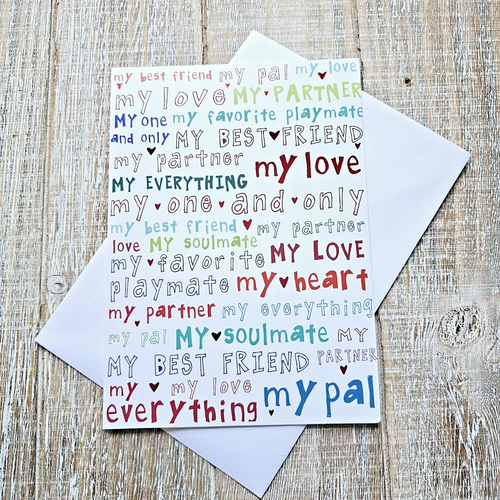 my best friend my pal my love
my love MY PARTNER
MY one my favorite playmate
and only MY BEST FRIEND
my partner my love
MY EVERYTHING
my one and only
my best friend my partner
love MY soulmate MY LOVE
my favorite
playmate my heart
my partner my everything
my pal MY soulmate MY
MY BEST FRIEND PARTNER
my my love my pal
everything